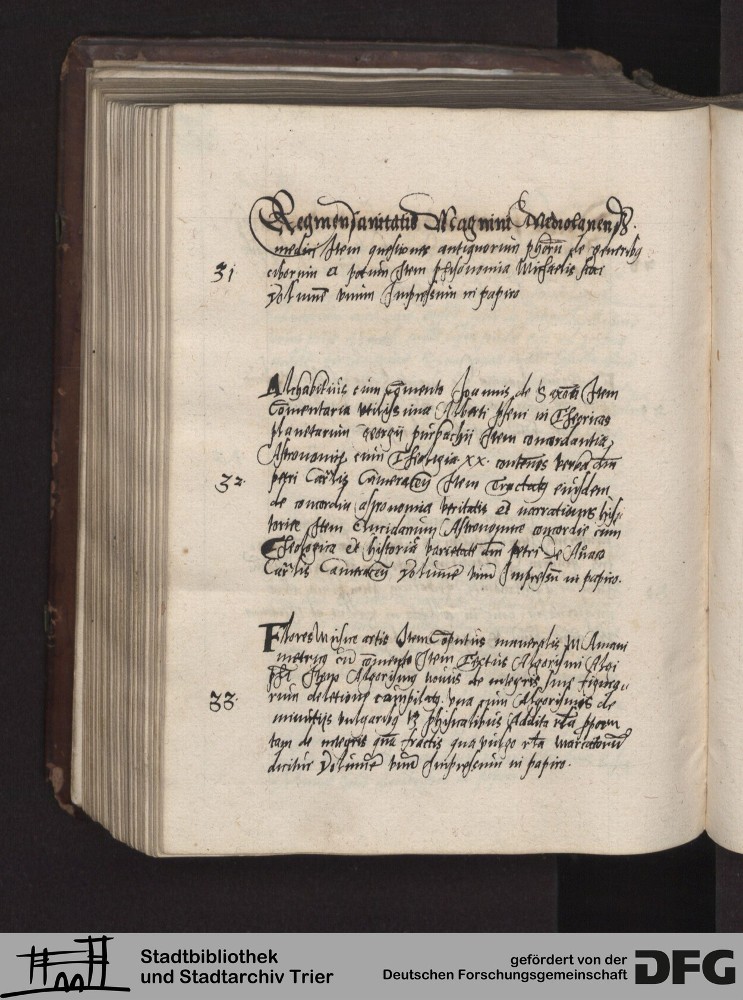 Regimen sanitatis Magnini Mediolanens̃
medici Item questiones antiquorum de generibus
31 ciborum et potuum Item phisonomia Michaelis Scoti
Volumē vnum Impressum in papiro
Alchabitius cum Comento Joannis de Saxoīa Item
Comentaria vtilissima Alberti in Theoricas
planetarum georgii purbachii Item concordantia
Astronomie cum Theologia xx. verba dm̄
32. petri Carlis Cameraceñ Item Tractatus eiusdem
de concordia astronomice veritatis et narrationis hijs-
torice Item Elucidarium Astronomice concordie cum
Theologica et historica varietate dm̄ petri de Aliaco
Carlis Cameraceñ volumē vnū Impressū in papiro.
Flores Musice artis Item Computus manualis M Aniani
metricus cū comento Item Textus Algorismi
Item Algorismus nouus de integris sine figura-
33. rum deletione compilatus. vna cum Algorismis de
minutijs vulgaribus et phisicalibus Addita
tam de integris quā fractis que vulgo mercatorum
dicitur Volumē vnū Impressum in papiro.
Stadtbibliothek
und Stadtarchiv Trier
gefördert von der
Deutschen Forschungsgemeinschaft
DFG